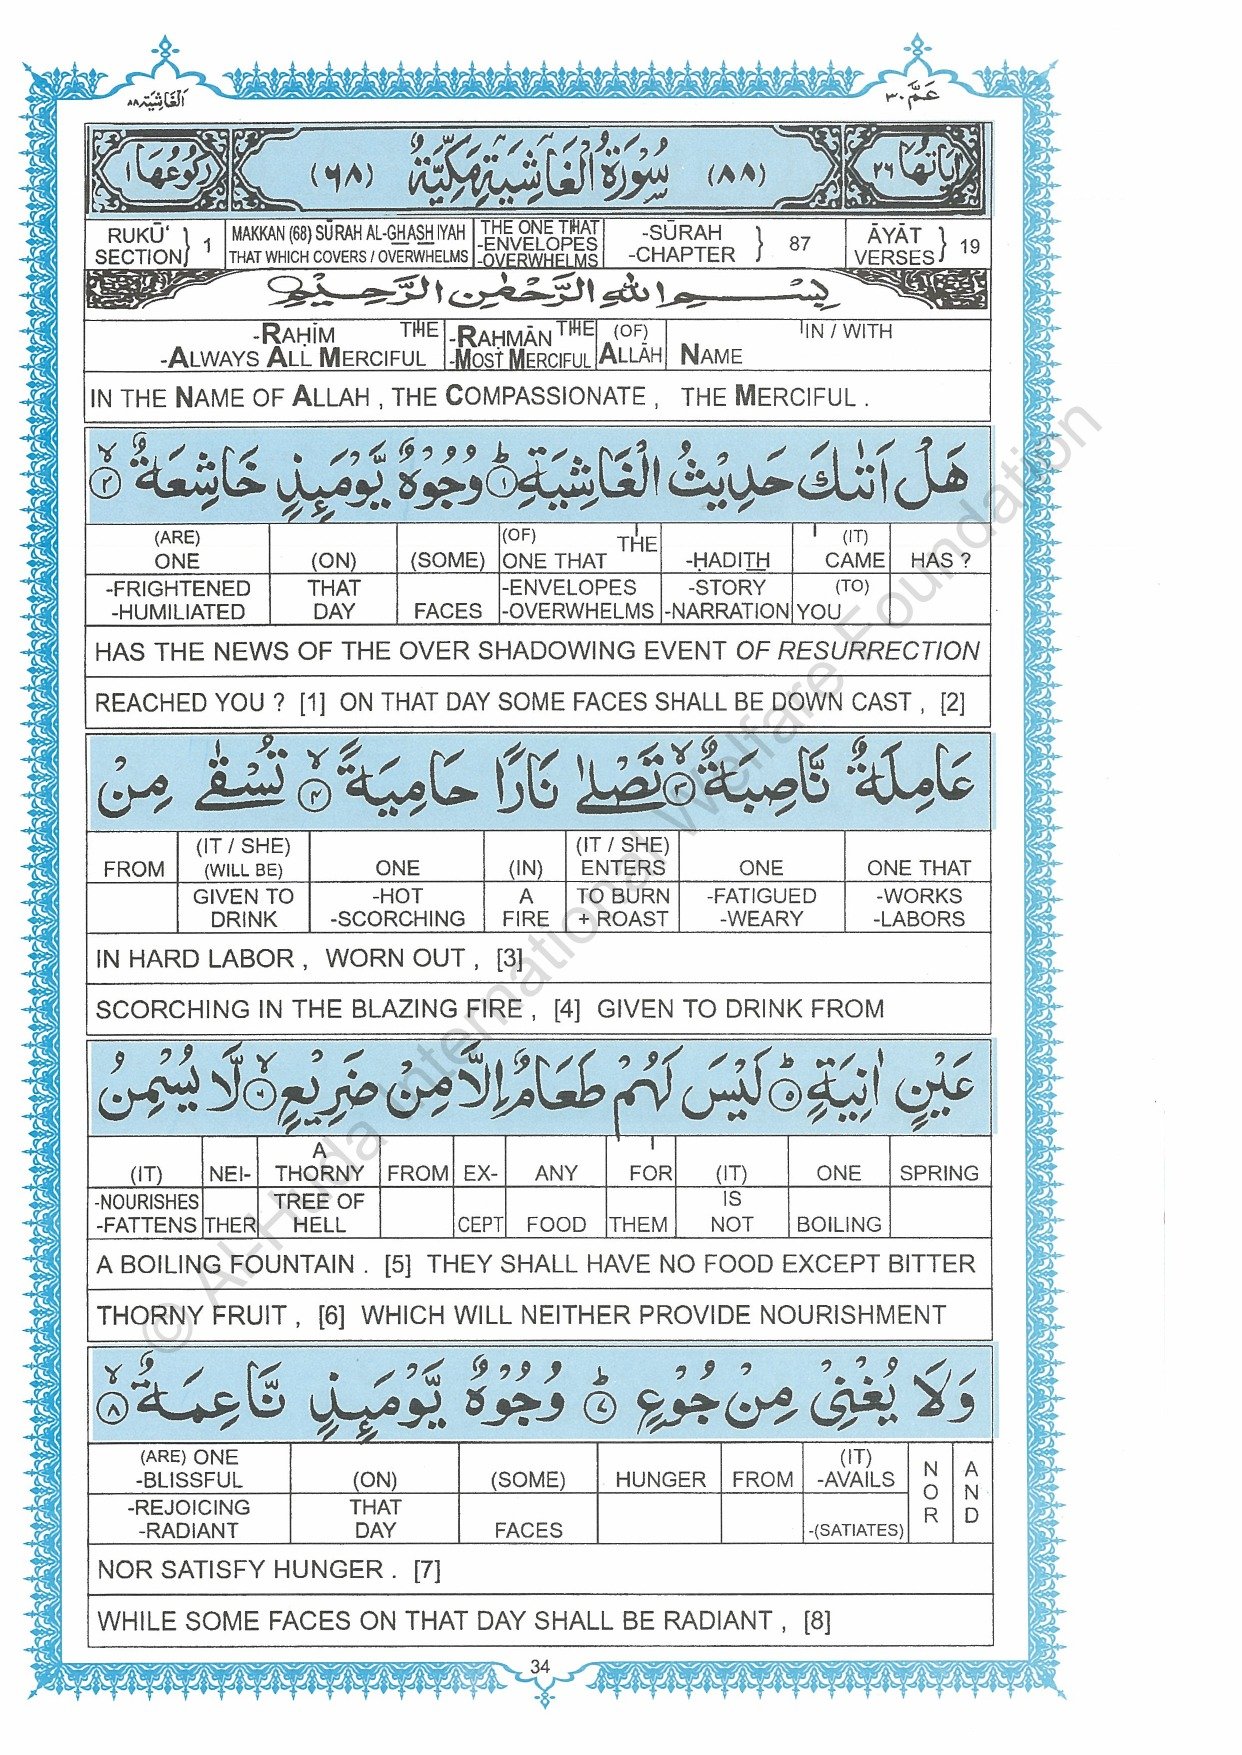 الغاشية ٨٨
عمّ ٣٠
اٰيَاتُهَا ٢٦
(٨٨) سُوْرَةُ الْغَاشِيَةِ مَكِّيَّةٌ (٦٨)
رُكُوْعُهَا ١
RUKŪ‘ SECTION} 1 MAKKAN (68) SŪRAH AL-GHASHIYAH THAT WHICH COVERS / OVERWHELMS THE ONE THAT -ENVELOPES -OVERWHELMS -SŪRAH -CHAPTER } 87 ĀYĀT VERSES} 19
بِسْمِ اللهِ الرَّحْمٰنِ الرَّحِيْمِ
-RAḤĪM THE -RAḤMĀN THE (OF) IN / WITH
-ALWAYS ALL MERCIFUL -MOST MERCIFUL ALLĀH NAME
IN THE NAME OF ALLAH , THE COMPASSIONATE , THE MERCIFUL .
هَلْ اَتٰىكَ حَدِيْثُ الْغَاشِيَةِ ؕ ١ وُجُوْهٌ يَّوْمَىِٕذٍ خَاشِعَةٌ ۙ ٢
(ARE) (OF) THE (IT)
ONE (ON) (SOME) ONE THAT -ḤADITH CAME HAS ?
-FRIGHTENED THAT -ENVELOPES -STORY (TO)
-HUMILIATED DAY FACES -OVERWHELMS -NARRATION YOU
HAS THE NEWS OF THE OVER SHADOWING EVENT OF RESURRECTION
REACHED YOU ? [1] ON THAT DAY SOME FACES SHALL BE DOWN CAST , [2]
عَامِلَةٌ نَّاصِبَةٌ ۙ ٣ تَصْلٰى نَارًا حَامِيَةً ۙ ٤ تُسْقٰى مِنْ
(IT / SHE) (IT / SHE)
FROM (WILL BE) ONE (IN) ENTERS ONE ONE THAT
GIVEN TO -HOT A TO BURN -FATIGUED -WORKS
DRINK -SCORCHING FIRE + ROAST -WEARY -LABORS
IN HARD LABOR , WORN OUT , [3]
SCORCHING IN THE BLAZING FIRE , [4] GIVEN TO DRINK FROM
عَيْنٍ اٰنِيَةٍ ؕ ٥ لَيْسَ لَهُمْ طَعَامٌ اِلَّا مِنْ ضَرِيْعٍ ۙ ٦ لَّا يُسْمِنُ
A
(IT) NEI- THORNY FROM EX- ANY FOR (IT) ONE SPRING
-NOURISHES TREE OF IS
-FATTENS THER HELL CEPT FOOD THEM NOT BOILING
A BOILING FOUNTAIN . [5] THEY SHALL HAVE NO FOOD EXCEPT BITTER
THORNY FRUIT , [6] WHICH WILL NEITHER PROVIDE NOURISHMENT
وَلَا يُغْنِيْ مِنْ جُوْعٍ ؕ ٧ وُجُوْهٌ يَّوْمَىِٕذٍ نَّاعِمَةٌ ۙ ٨
(ARE) ONE (IT)
-BLISSFUL (ON) (SOME) HUNGER FROM -AVAILS NOR AND
-REJOICING THAT
-RADIANT DAY FACES -(SATIATES)
NOR SATISFY HUNGER . [7]
WHILE SOME FACES ON THAT DAY SHALL BE RADIANT , [8]
34
© Al-Huda International Welfare Foundation